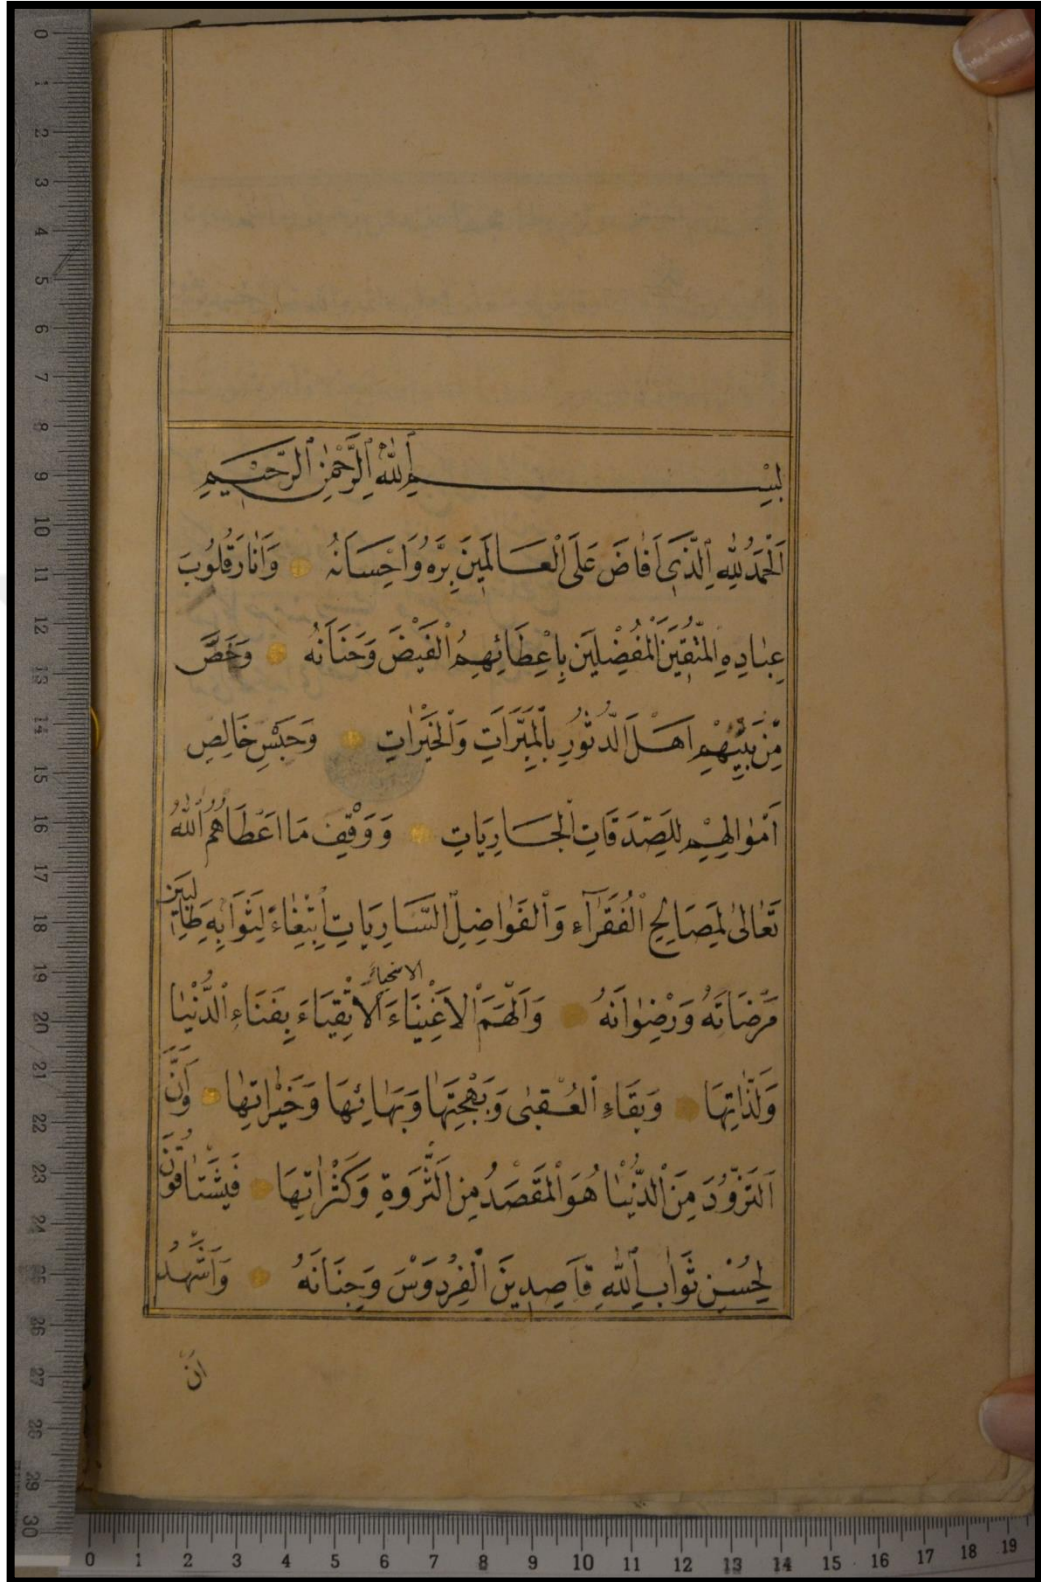 بِسْمِ اللّٰهِ الرَّحْمٰنِ الرَّحِيمِ
اَلْحَمْدُ لِلّٰهِ الَّذِي اَفَاضَ عَلَى الْعَالَمِينَ بِرَّهُ وَاِحْسَانَهُ وَاَنَارَ قُلُوبَ
عِبَادِهِ الْمُتَّقِينَ الْمُفْضِلِينَ بِاِعْطَائِهِمُ الْفَيْضَ وَحَنَانَهُ وَخَصَّ
مِنْ بَيْنِهِمْ اَهْلَ الدُّثُورِ بِالْمَبَرَّاتِ وَالْخَيْرَاتِ وَحَبْسِ خَالِصِ
اَمْوَالِهِمْ لِلصَّدَقَاتِ الْجَارِيَاتِ وَوَقْفِ مَا اَعْطَاهُمُ اللّٰهُ
تَعَالٰى لِمَصَالِحِ الْفُقَرَآءِ وَالْفَوَاضِلِ السَّارِيَاتِ اِبْتِغَاءً لِثَوَابِهِ طَالِبِينَ
مَرْضَاتَهُ وَرِضْوَانَهُ وَاَلْهَمَ الْاَغْنِيَاءَ الْاَتْقِيَاءَ بِفَنَاءِ الدُّنْيَا
الاسخياء
وَلَذَّاتِهَا وَبَقَاءِ الْعُقْبٰى وَبَهْجَتِهَا وَبَهَائِهَا وَخَيْرَاتِهَا وَاَنَّ
اَلتَّزَوُّدَ مِنَ الدُّنْيَا هُوَ الْمَقْصَدُ مِنَ الثَّرْوَةِ وَكَثْرَاتِهَا فَيَشْتَاقُونَ
لِحُسْنِ ثَوَابِ اللّٰهِ قَاصِدِينَ الْفِرْدَوْسَ وَجِنَانَهُ وَاَشْهَدُ
اَنْ
0 1 2 3 4 5 6 7 8 9 10 11 12 13 14 15 16 17 18 19 20 21 22 23 24 25 26 27 28 29 30
0 1 2 3 4 5 6 7 8 9 10 11 12 13 14 15 16 17 18 19